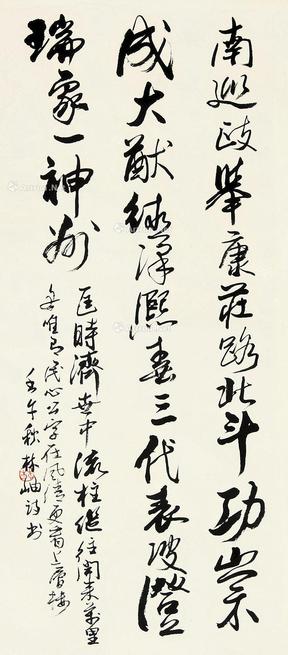 南巡政举康庄路北斗功崇
成大猷绿泽熙春三代表波澄
瑞象一神州
匡时济世中流柱继往开来万里
舟唯有民心公字在风清更看上层楼
壬午秋林岫诗书